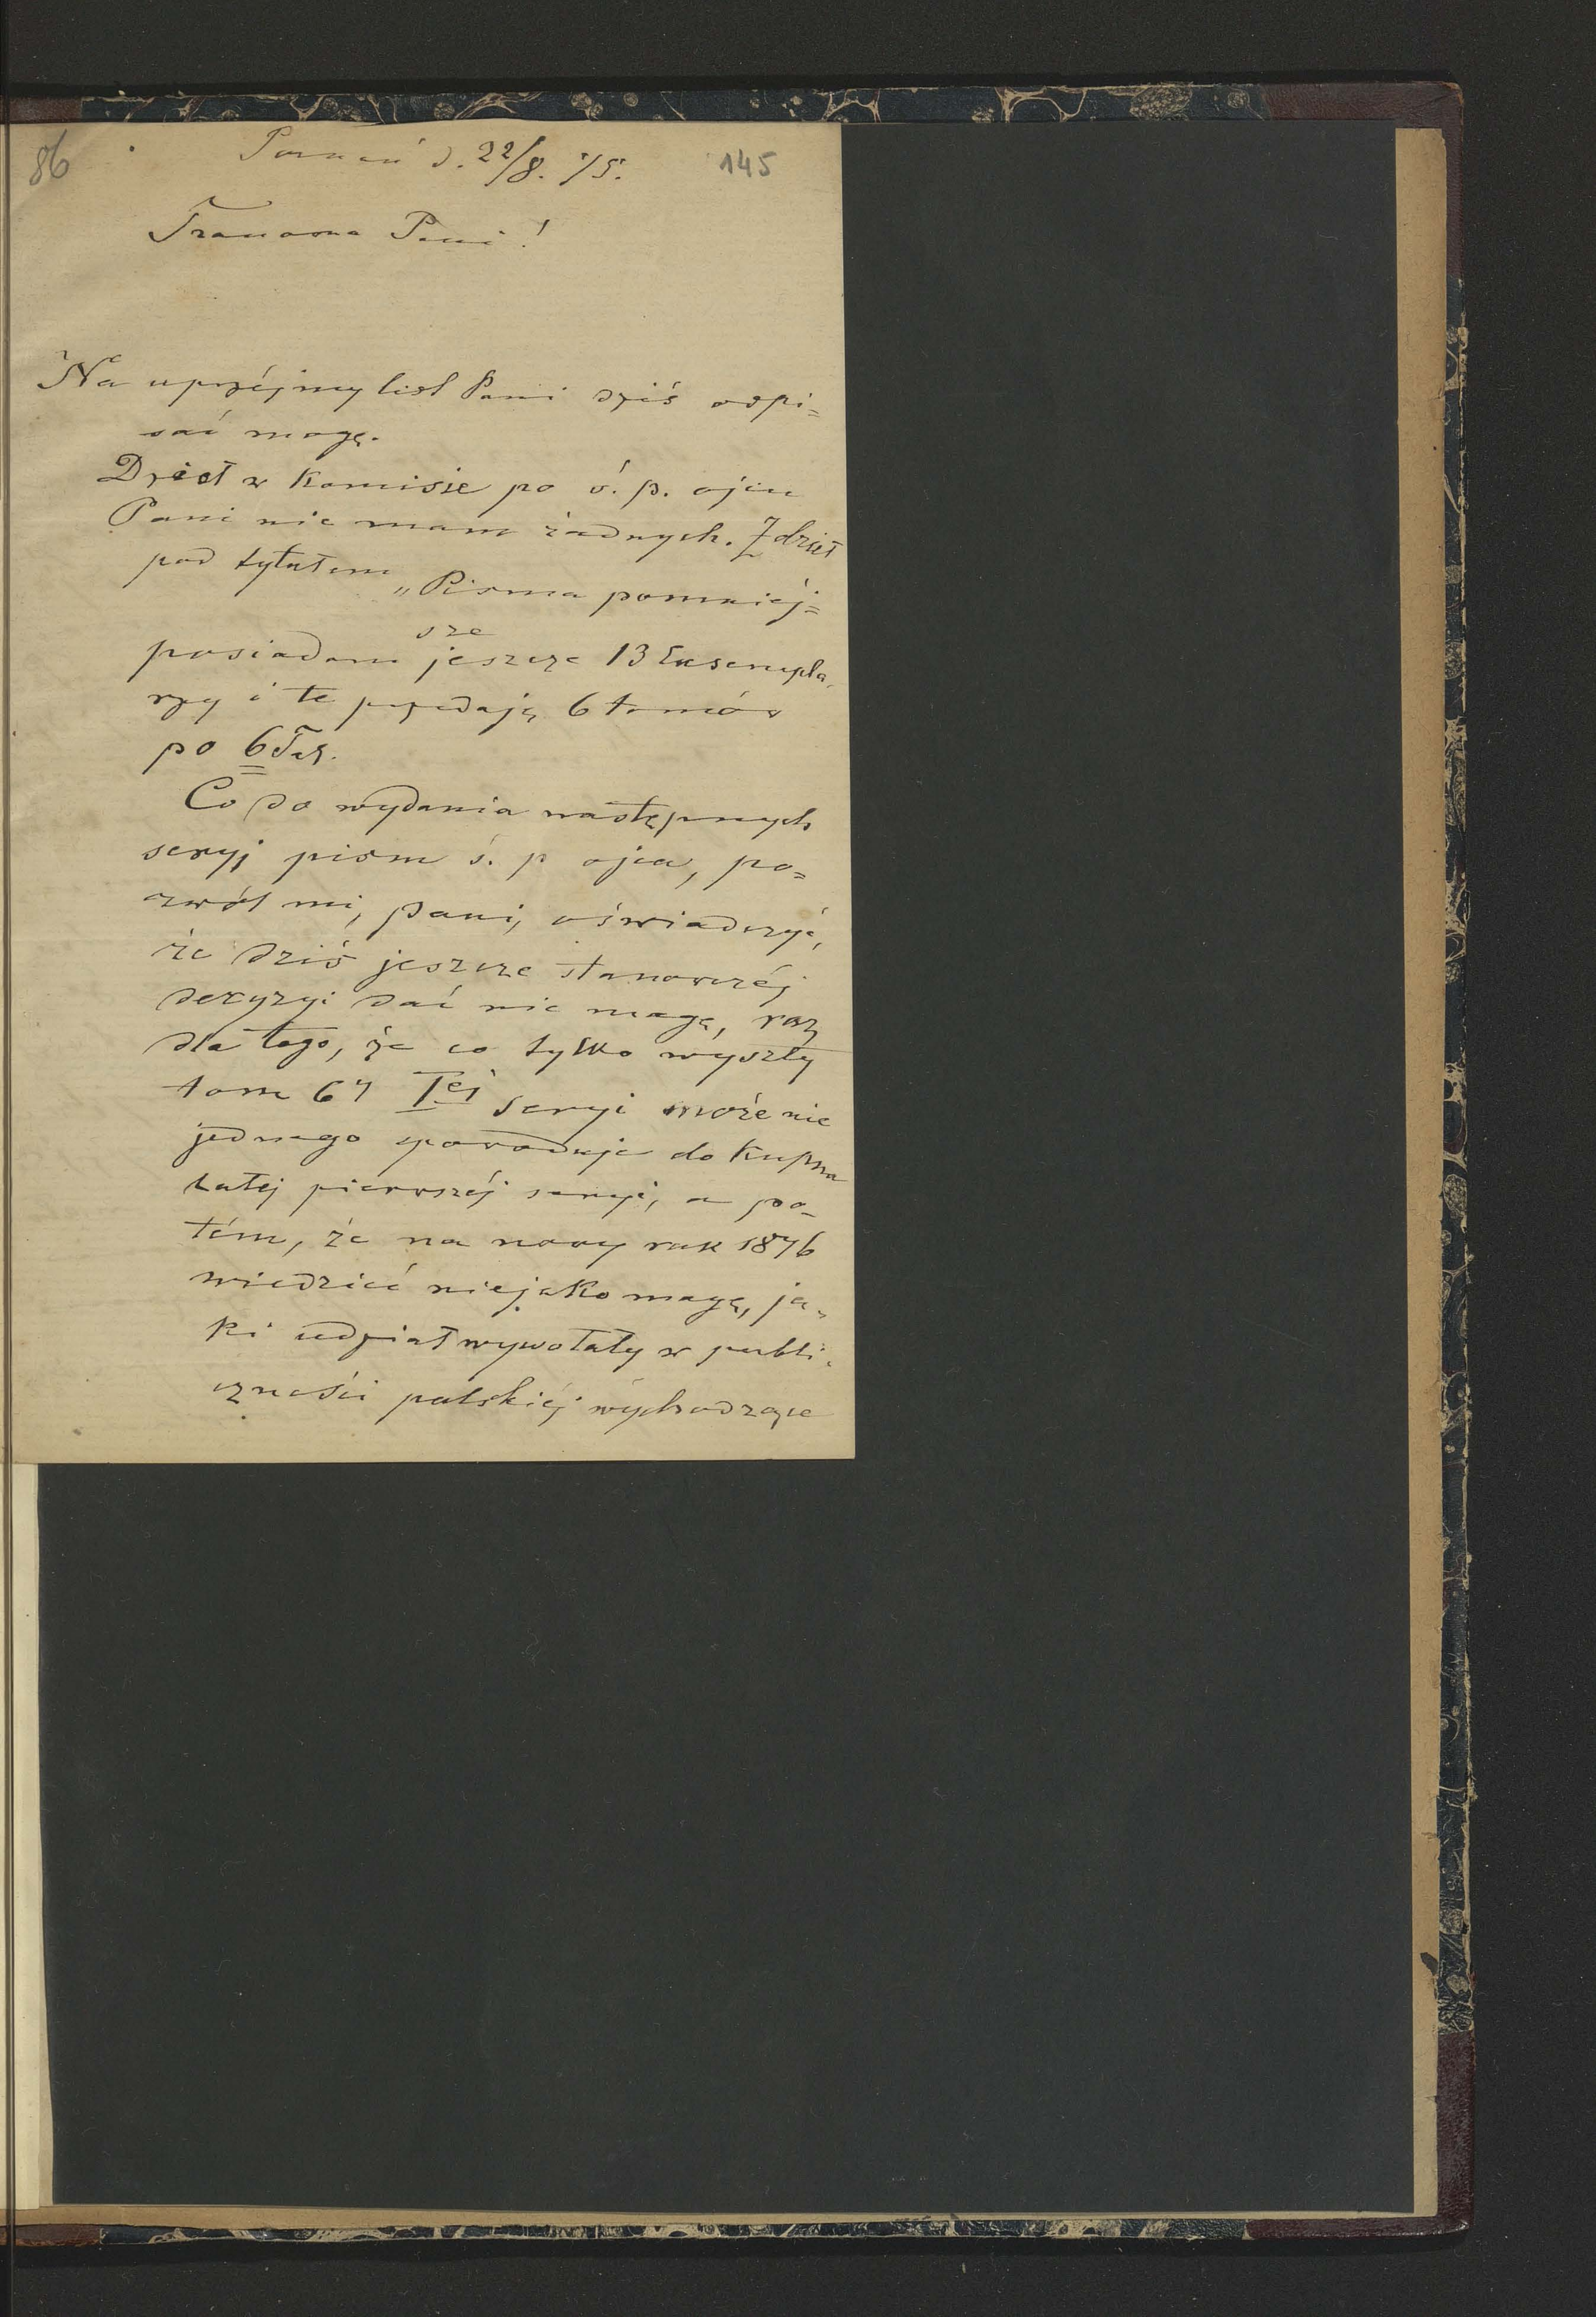 86
Poznań d. 22/8. 75.
145
Szanowna Pani!
Na uprzéjmy list Pani dziś odpi=
sać mogę.
Dzieł w Komisie po ś. p. ojcu
Pani nie mam żadnych. Z dzieł
pod tytułem
„Pisma pomniéj=
sze
posiadam jeszcze 13 Exsempla,
rzy i te przedają 6 tomów
po 6 Tal.
Co do wydania następnych
seryj pism ś. p ojca, po=
zwól mi, pani, oświadczyć,
że dziś jeszcze stanowczéj
decyzyi dać nie mogę, raz
dla tego, że co tylko wyszły
tom 6y Iéj seryi może nie
jednego spowoduje do Kupna
całej pierwszéj seryi, a po=
tém, że na nowy rok 1876
wiedzieć niejako mogę, ja,
ki udział wywołały w publi,
czności polskiéj wychodzące